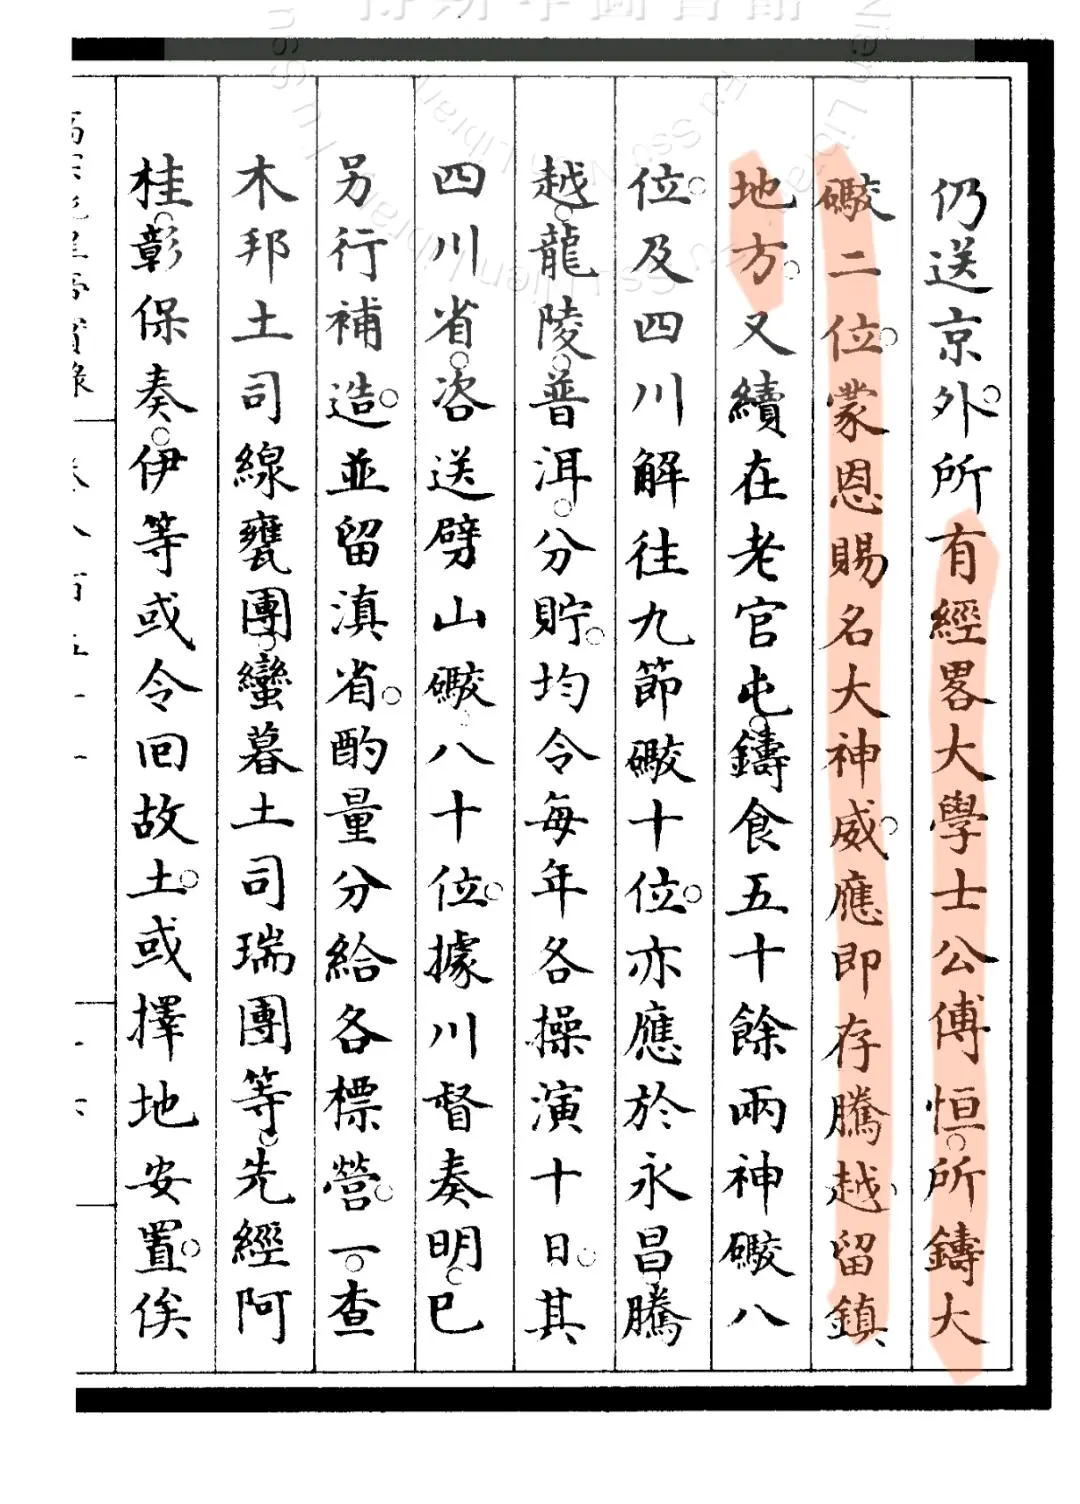 仍送京外。所有經畧大學士公傅恒。所鑄大
礮二位。蒙恩賜名大神威。應即存騰越。留鎮
地方。又續在老官屯。鑄食五十餘兩神礮八
位。及四川解往九節礮十位。亦應於永昌。騰
越。龍陵。普洱。分貯。均令每年各操演十日。其
四川省。咨送劈山礮八十位。據川督奏明。已
另行補造。並留滇省。酌量分給各標營。一。查
木邦土司線甕團。蠻暮土司瑞團等。先經阿
桂。彰保奏。伊等或令回故土。或擇地安置。俟